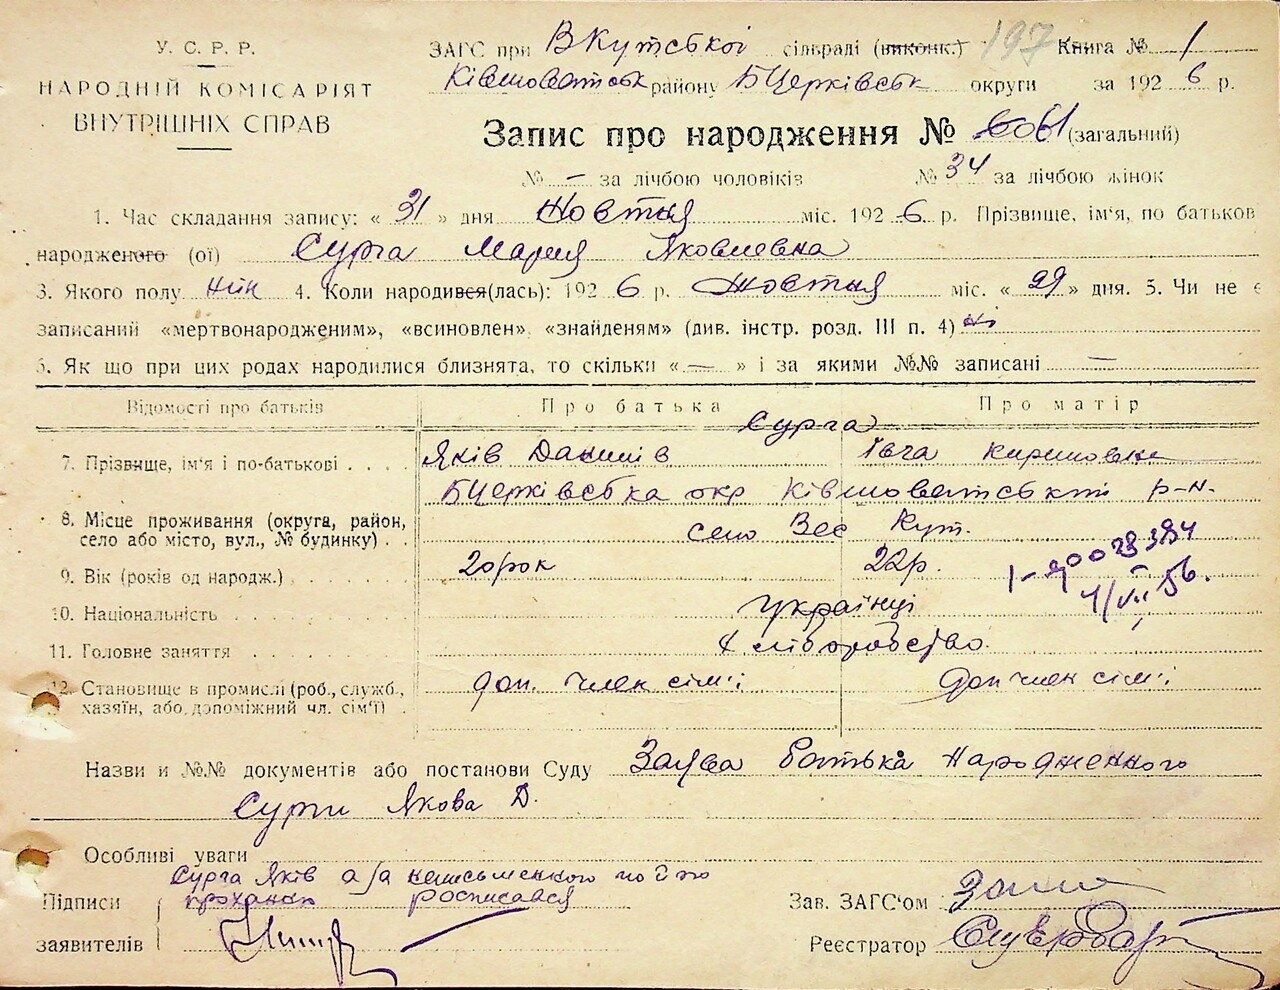 У. С. Р. Р.
НАРОДНІЙ КОМІСАРІЯТ
ВНУТРІШНІХ СПРАВ
ЗАГС при ВКутської сільраді (виконк.) 197 Книга № 1
Ківшоватськ району БЦерківськ округи за 192 6 р.
Запис про народження № (загальний)
№ — за лічбою чоловіків № 34 за лічбою жінок
1. Час складання запису: « 31 » дня Жовтня міс. 192 6 р. Прізвище, ім'я, по батьков
народженого (ої) Сурга Мария Яковлевна
3. Якого полу жін 4. Коли народився(лась): 192 6 р. Жовтня міс. « 29 » дня. 5. Чи не є
записаний «мертвонародженим», «всиновлен», «знайденям» (див. інстр. розд. III п. 4) ні
6. Як що при цих родах народилися близнята, то скільки « — » і за якими №№ записані —
Відомості про батьків Про батька Про матір
Сурга
7. Прізвище, ім'я і по-батькові . . . . Яків Данилів Ївга Кириловна
БЦерківська окр Ківшоватський р-н.
8. Місце проживання (округа, район,
село або місто, вул., № будинку) . . село Вес Кут.
9. Вік (років од народж.) 20рок 22р.
1-
10. Національність Українці
11. Головне заняття хліборобство.
12. Становище в промислі (роб., служб.,
хазяїн, або допоміжний чл. сім'ї) . доп. член сім'ї Доп член сім'ї
Назви и №№ документів або постанови Суду Заява батька Народженного
Сурги Якова Д.
Особливі уваги
Сурга Яків а за неписьменного по його
Підписи проханню росписався
заявителів
Зав. ЗАГС'ом
Реєстратор